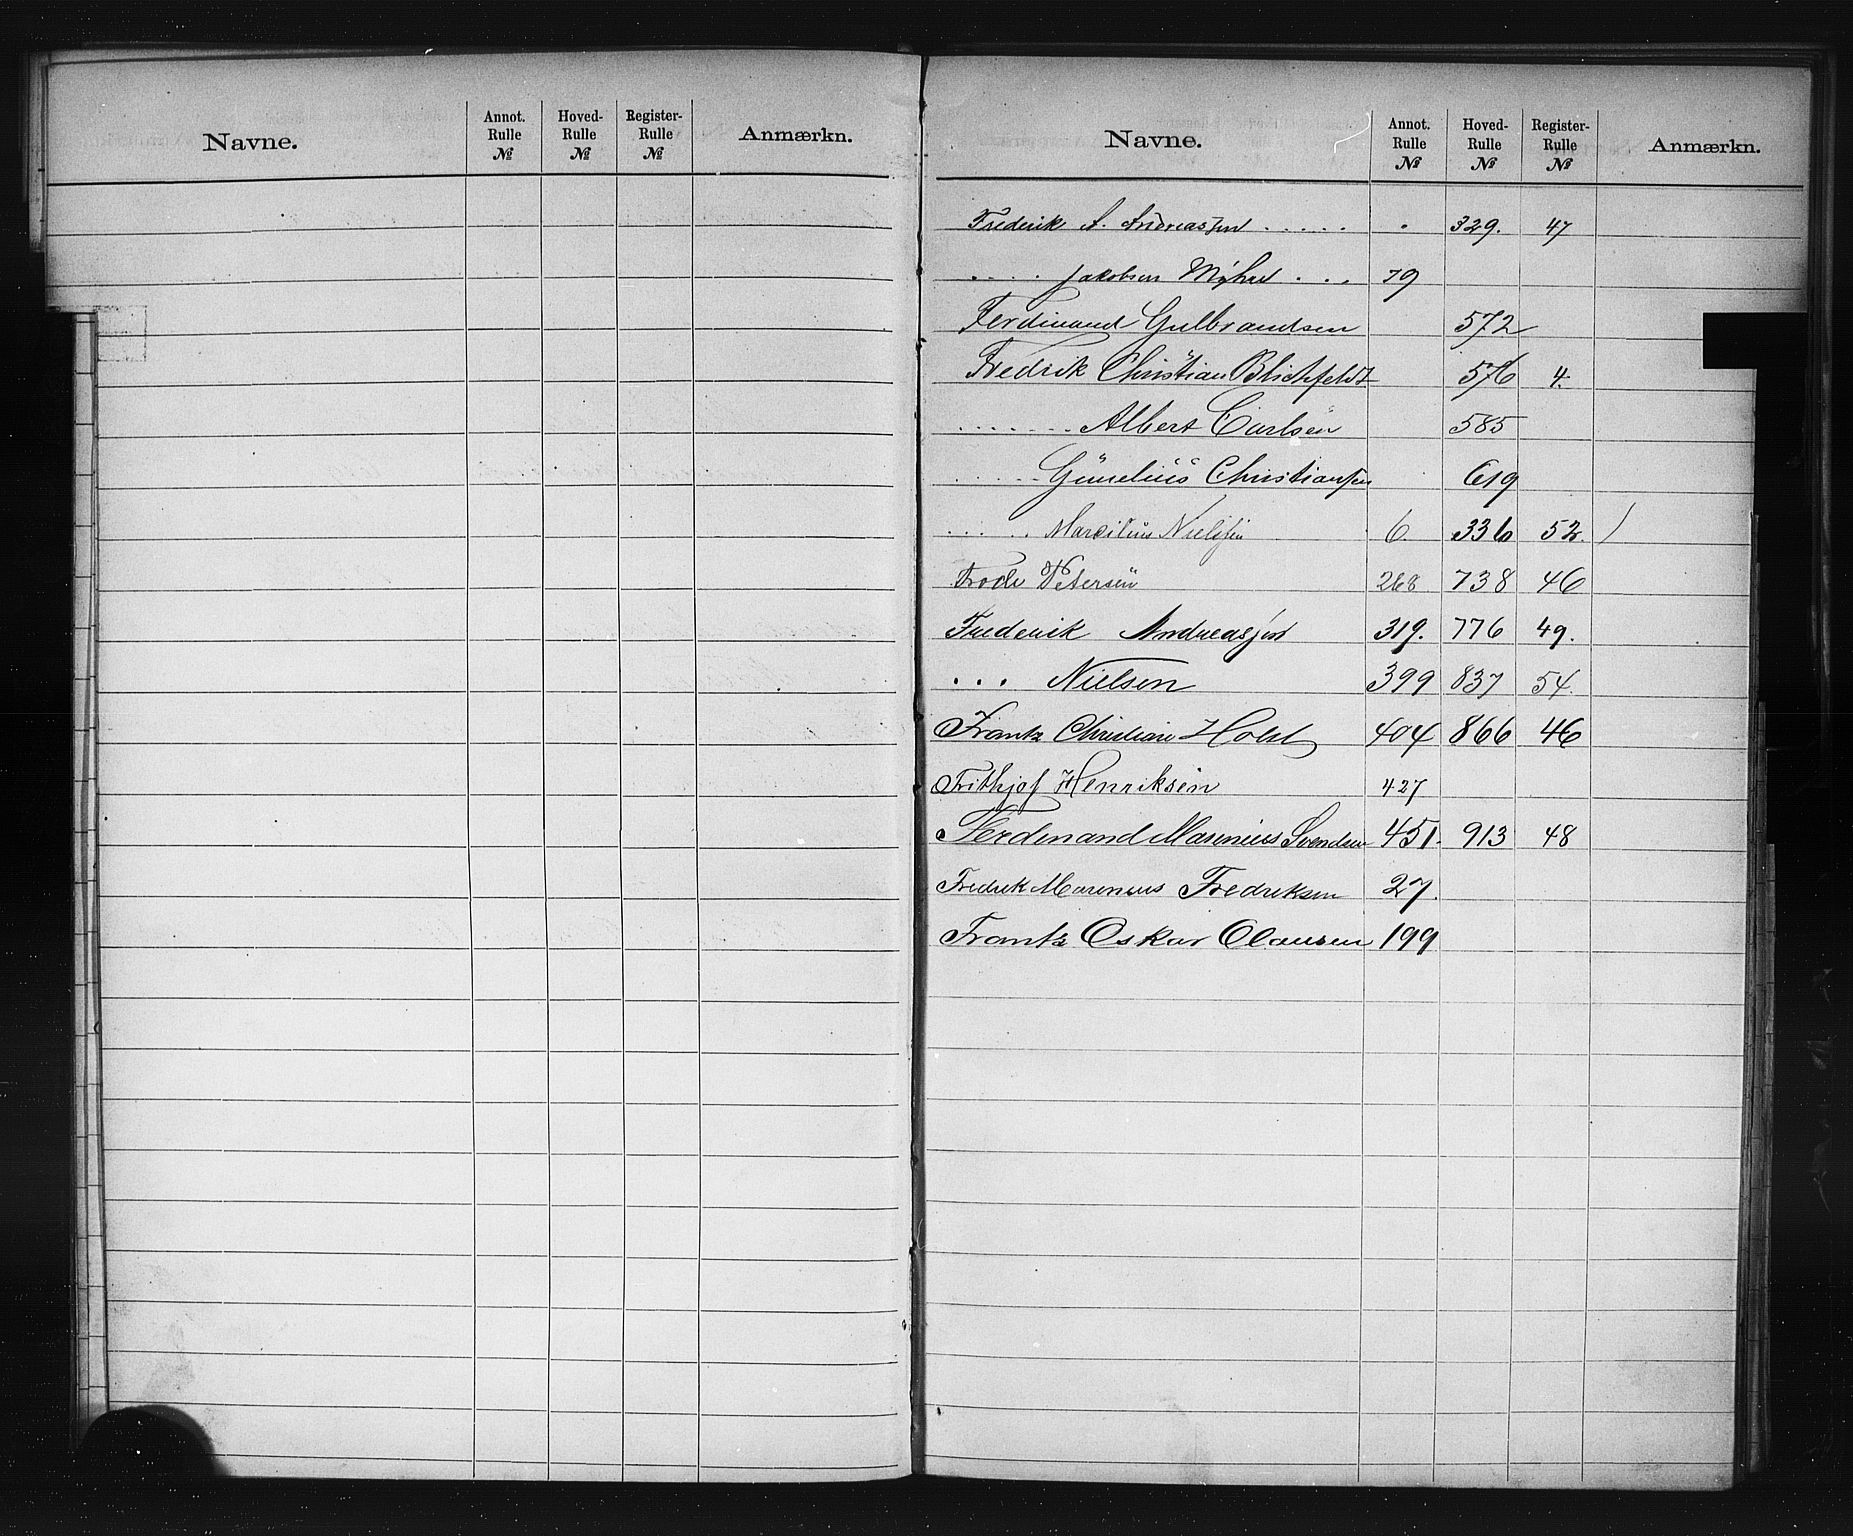 Navne. Annot. Rulle № Hoved-Rulle № Register-Rulle № Anmærkn.
Navne. Annot. Rulle № Hoved-Rulle № Register-Rulle № Anmærkn.
Frederik A. Andreassen . . . . . . 329. 47
. . . . Jakobsen Myhre . . . 79
Ferdinand Gulbrandsen 572
Fredrik Christian Blichfeldt 576 4.
. . . . . . . Albert Carlsen 585
. . . . . Christiansen 619
. . . . . Marcilius Nielsen 6. 336 52. /
Frode Petersen 268 738 46
Frederik Andreassen 319. 776 49.
. . . Nielsen 399 837 54.
Frantz Christian Holst 404 866 46
Frithjof Henriksen 427
Ferdinand Marenius Svendsen 451. 913 48
Fredrik Marenius Fredriksen 27.
Frantz Oskar Clausen 199